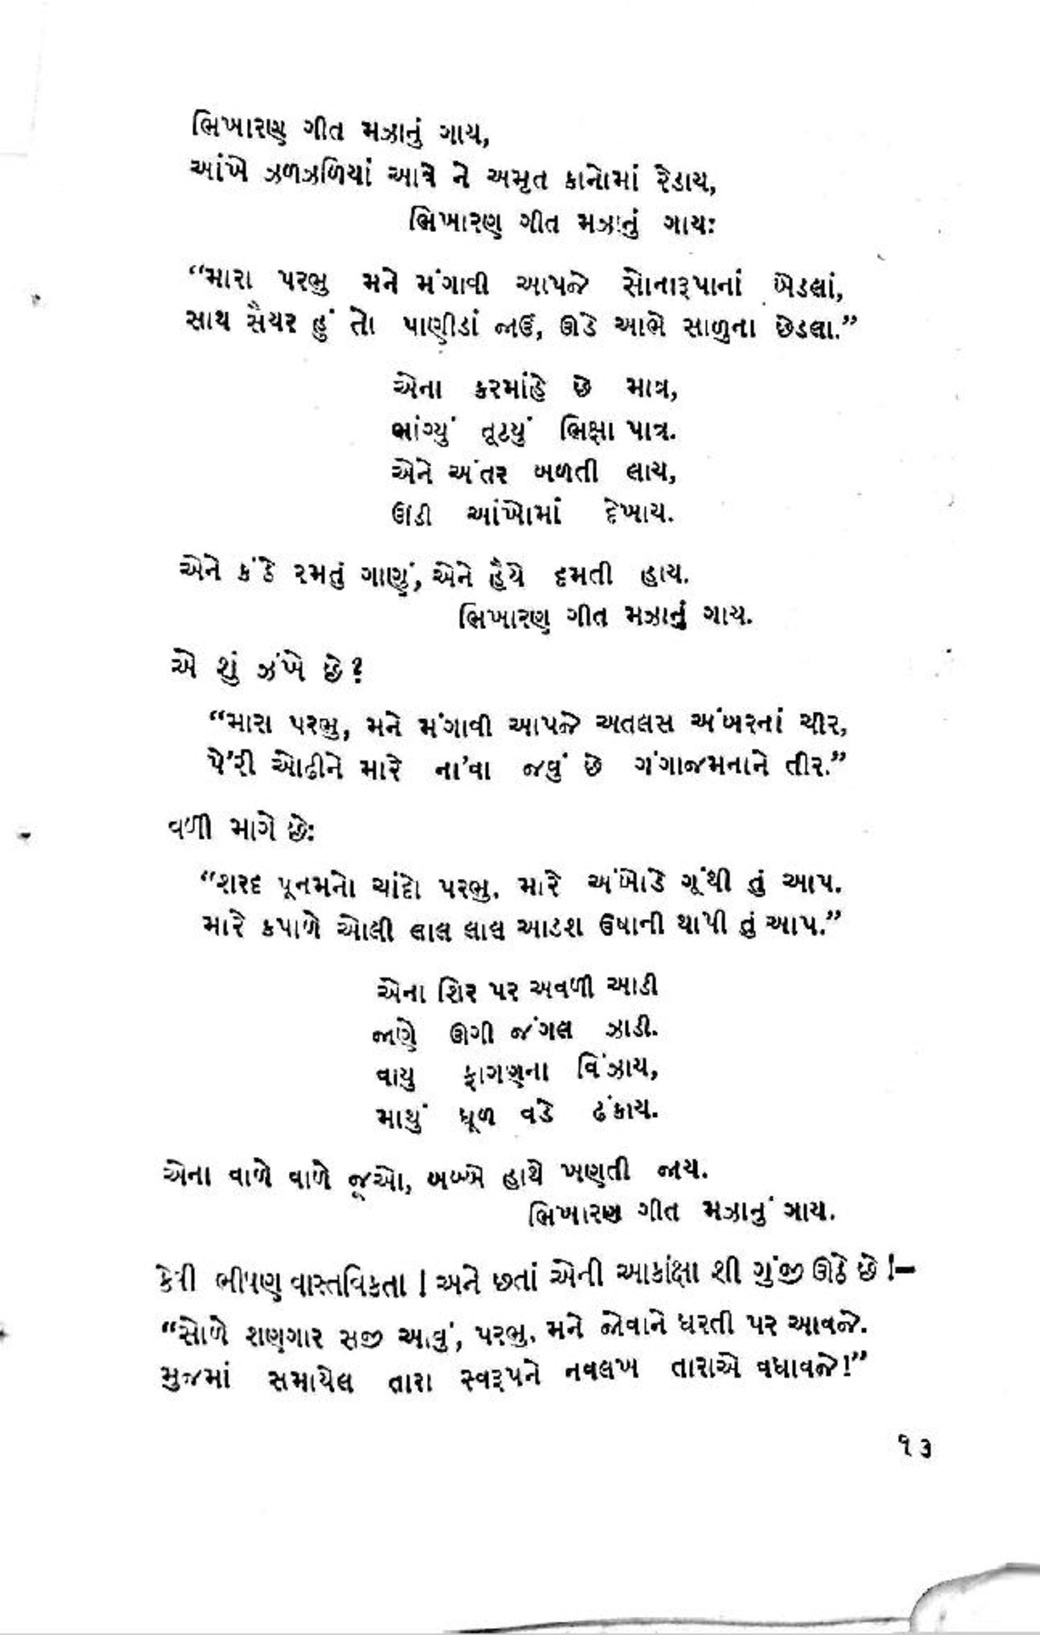 ભિખારણ ગીત મઝાનું ગાય,
આંખે ઝળઝળિયાં આવે ને અમૃત કાનોમાં રેડાય,
ભિખારણ ગીત મઝાનું ગાયઃ
“મારા પરભુ મને મંગાવી આપજે સોનારૂપાનાં બેડલાં,
સાથ સૈયર હું તો પાણીડાં જાઉં, ઊડે આભે સાળુના છેડલા.”
એના કરમાંહે છે માત્ર,
ભાંગ્યું તૂટયું ભિક્ષા પાત્ર.
એને અંતર બળતી લાય,
ઊંડી આંખોમાં દેખાય.
એને કંઠે રમતું ગાણું, એને હૈયે દમતી હાય.
ભિખારણ ગીત મઝાનું ગાય.
એ શું ઝંખે છે?
“મારા પરભુ, મને મંગાવી આપજે અતલસ અંબરનાં ચીર,
પે'રી ઓઢીને મારે ના'વા જવું છે ગંગાજમનાને તીર.”
વળી માગે છેઃ
“શરદ પૂનમનો ચાંદો પરભુ. મારે અંબોડે ગૂંથી તું આપ.
મારે કપાળે ઓલી લાલ લાલ આડશ ઉષાની થાપી તું આપ.”
એના શિર પર અવળી આડી
જાણે ઊગી જંગલ ઝાડી.
વાયુ ફાગણના વિંઝાય,
માથું ધૂળ વડે ઢંકાય.
એના વાળે વાળે જૂઓ, બબ્બે હાથે ખણતી જાય.
ભિખારણ ગીત મઝાનું ગાય.
કેવી ભીષણ વાસ્તવિકતા ! અને છતાં એની આકાંક્ષા શી ગુંજી ઊઠે છે !—
“સોળે શણગાર સજી આવું, પરભુ. મને જોવાને ધરતી પર આવજે.
મુજમાં સમાયેલ તારા સ્વરૂપને નવલખ તારાએ વધાવજે!”
૧૩